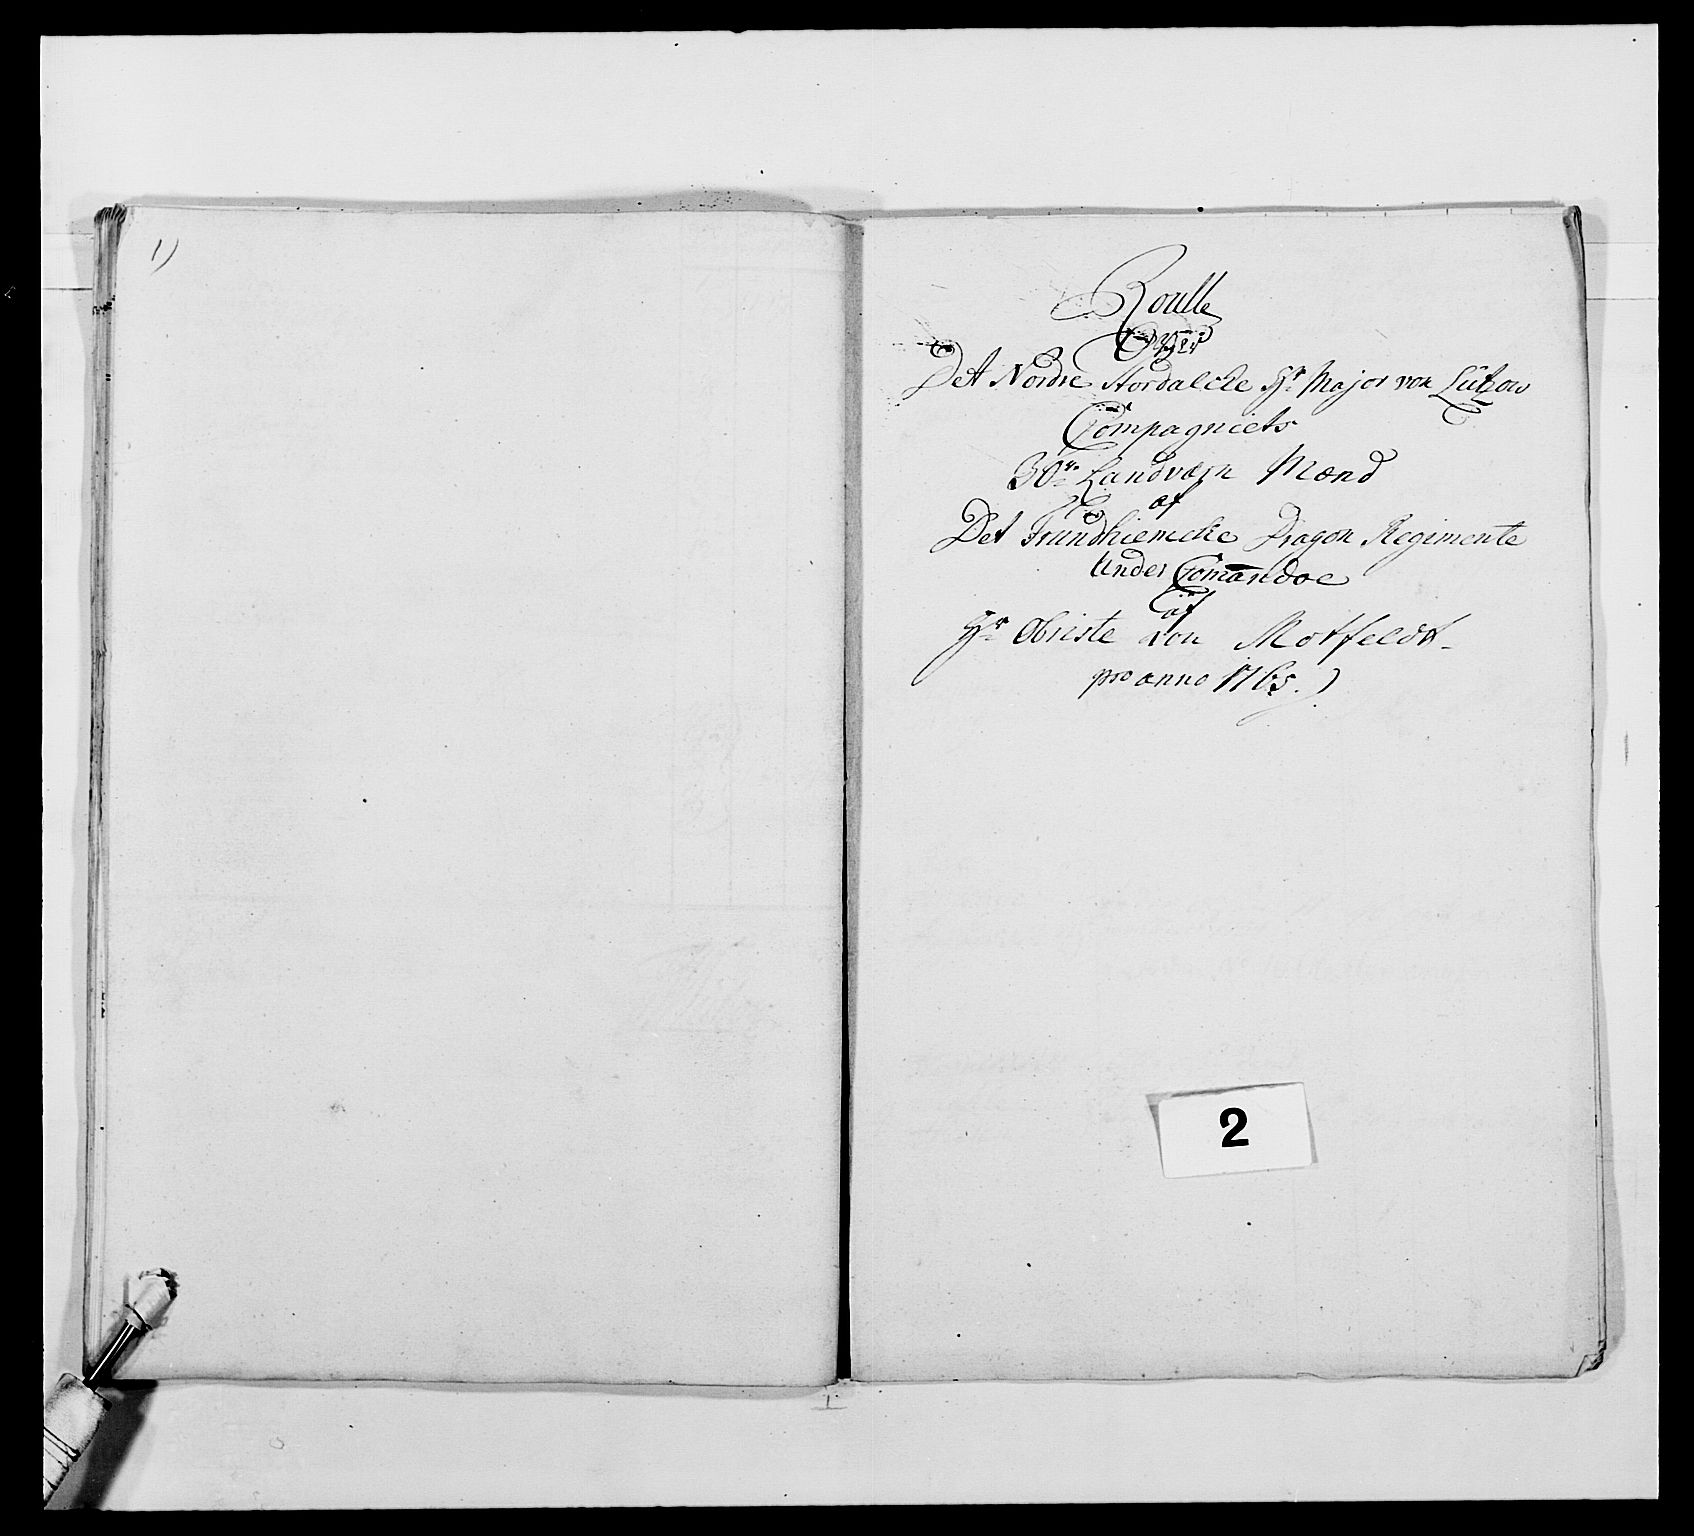 1)
Roulle
Over
Det Nordre Stordalske Hr Major von Lützow
Compagniets
30te Landværn Mænd
af
Det Trundhiemske Dragon Regimente
Under Comandoe
af
Hr Obriste von Motfeldt
pro anno 1765.)
2